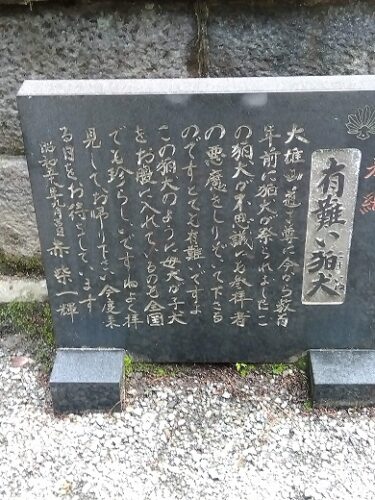 奉納
有難い狛犬
大雄山道了尊に今から数百
年前に狛犬が祭られましたこ
の狛犬が不思議にも参拝者
の悪魔をしりぞいて下さる
のですとても有難いですよ
この狛犬のように母犬が子犬
をお腹に入れているのも全国
でも珍らしいですねよく拝
見してお帰り下さい今度来
る日をお待としています
昭和 赤柴一輝